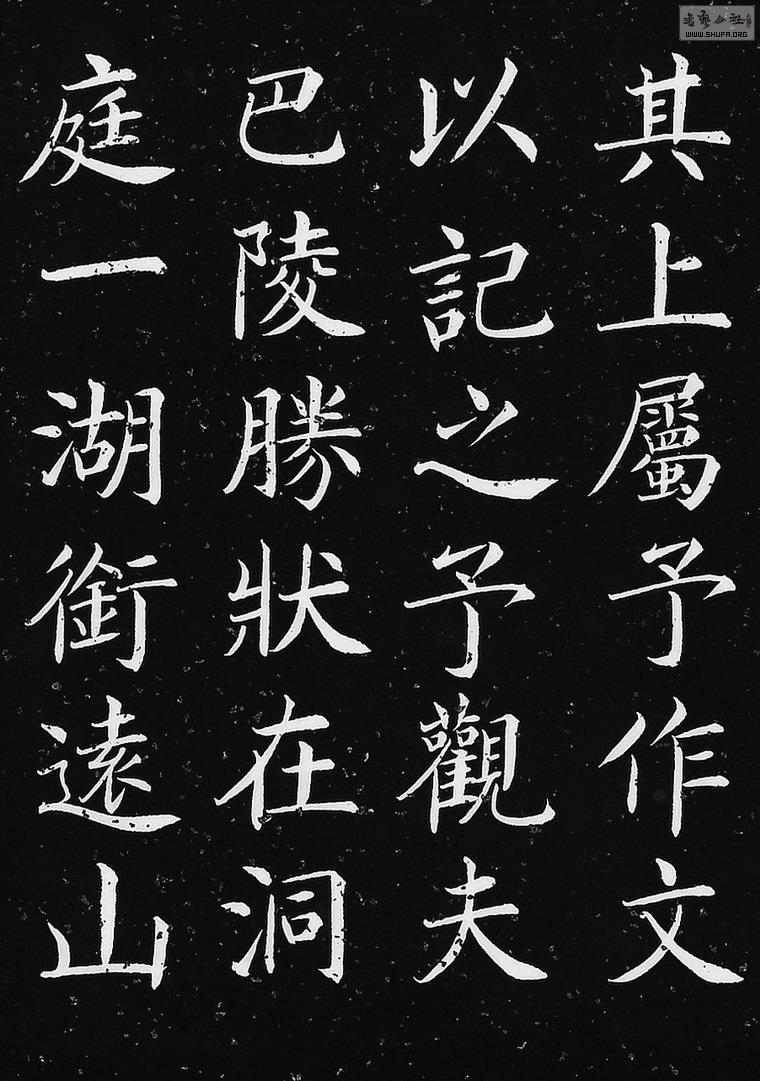 其上屬予作文
以記之予觀夫
巴陵勝狀在洞
庭一湖銜遠山
WWW.SHUFA.ORG